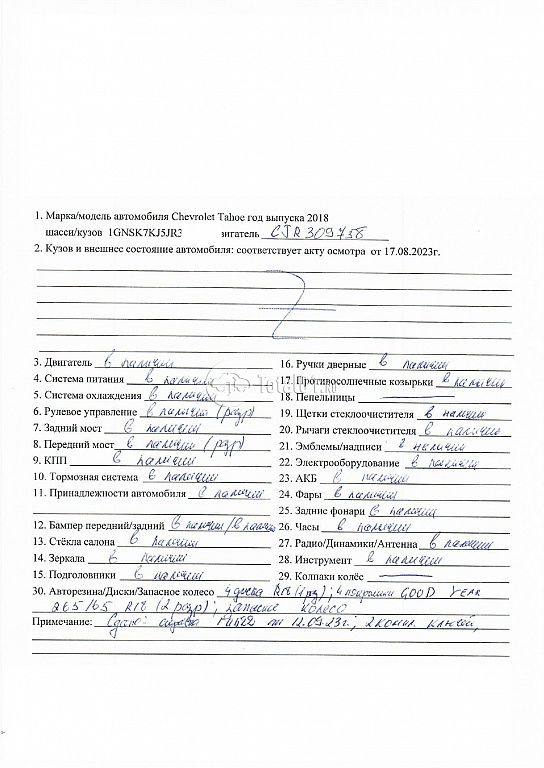 1. Марка/модель автомобиля Chevrolet Tahoe год выпуска 2018
шасси/кузов 1GNSK7KJ5JR3 зигатель CJR309758
2. Кузов и внешнее состояние автомобиля: соответствует акту осмотра от 17.08.2023г.
3. Двигатель в наличии
4. Система питания в наличии
5. Система охлаждения в наличии
6. Рулевое управление в наличии (разр)
7. Задний мост в наличии
8. Передний мост в наличии (разр)
9. КПП в наличии
10. Тормозная система в наличии
11. Принадлежности автомобиля в наличии
12. Бампер передний/задний в наличии/в наличии
13. Стёкла салона в наличии
14. Зеркала в наличии
15. Подголовники в наличии
16. Ручки дверные в наличии
17. Противосолнечные козырьки в наличии
18. Пепельницы
19. Щетки стеклоочистителя в наличии
20. Рычаги стеклоочистителя в наличии
21. Эмблемы/надписи в наличии
22. Электрооборудование в наличии
23. АКБ в наличии
24. Фары в наличии
25. Задние фонари в наличии
26. Часы в наличии
27. Радио/Динамики/Антенна в наличии
28. Инструмент в наличии
29. Колпаки колёс
30. Авторезина/Диски/Запасное колесо 4 диска R18 ; 4 покрышки GOOD YEAR
265/65 R18 (2 разр); запасное колесо
Примечание: справка от 12.09.23г.; 2 компл. ключей,